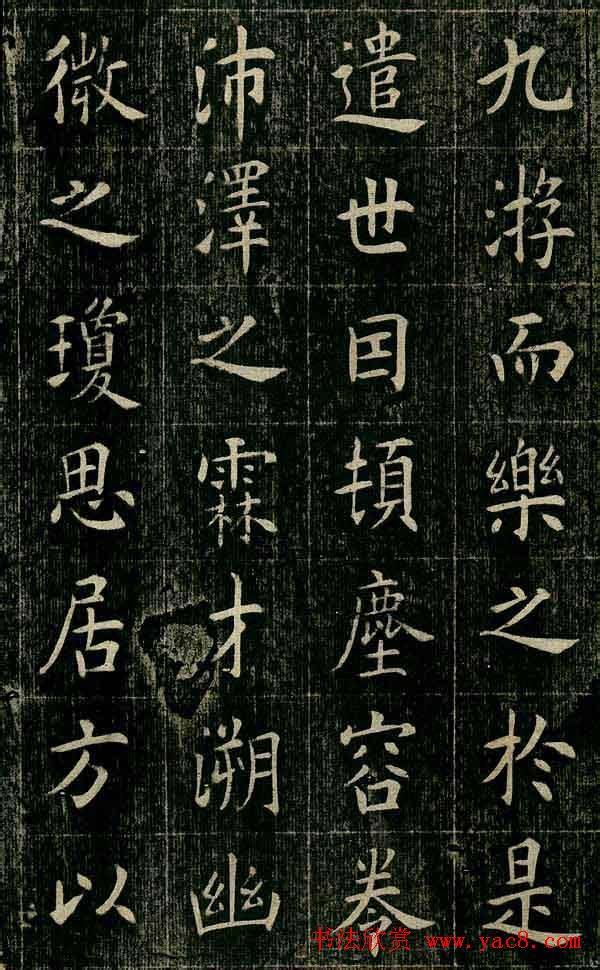 九游而樂之於是
遣世囙頓塵容
沛澤之霖才溯幽
微之瓊思居方以
书法欣赏 www.yac8.com